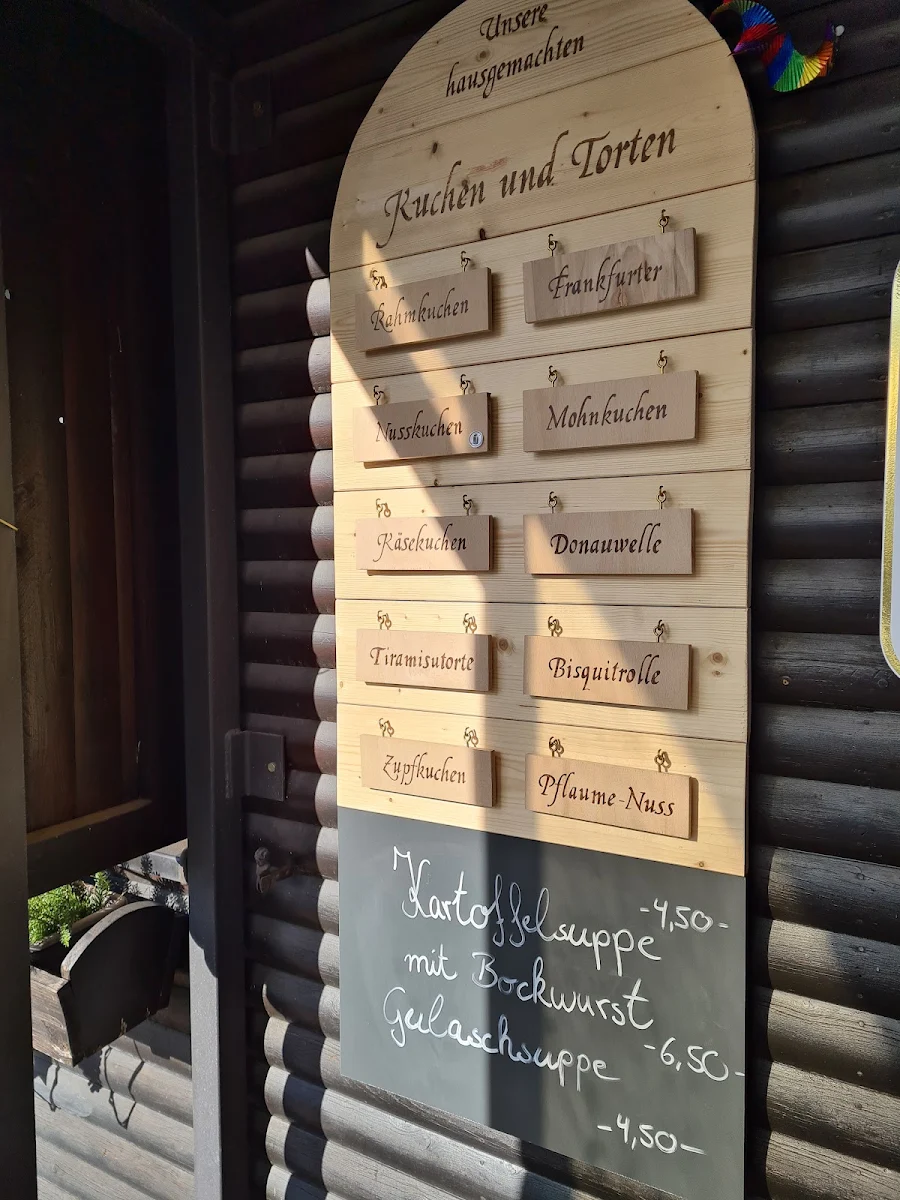 Unsere
hausgemachten
Kuchen und Torten
Rahmkuchen
Frankfurter
Nusskuchen
Mohnkuchen
Käsekuchen
Donauwelle
Tiramisutorte
Bisquitrolle
Zupfkuchen
Pflaume-Nuss
Kartoffelsuppe -4,50-
mit Bockwurst
-6,50-
Gulaschsuppe
-4,50-